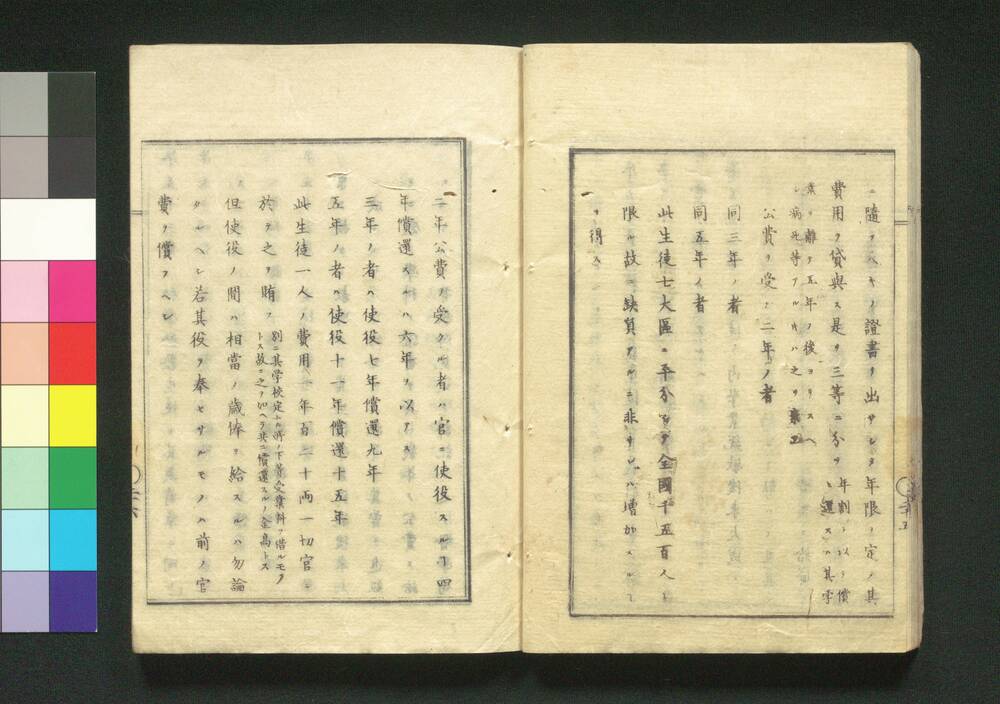 ニ隨ヲヘキノ證書ヲ出サシメ年限ヲ定メ其
費用ヲ貸與ス是ヲ三等ニ分ツ年割ヲ以テ償
ヒ還スハ其学
業ヲ離レ五年ノ後ヨリスヘ
シ病死等アルキハ之ヲ棄正
公費ヲ受ル二年ノ者
同三年ノ者
同五年ノ者
此生徒七大區ニ平分シテ全國千五百人ト
限ル故ニ缺員アルニ非サレハ増加スルヿ
ヲ得ス
一二年公費ヲ受クル者ハ官ニ使役スルヿ四
年償還スルハ六年ヲ以テス
三年ノ者ハ使役七年償還九年
五年ノ者ハ使役十一年償還十五年
此生徒一人ノ費用一年百二十両一切官ニ
於テ之ヲ賄フ別ニ其学校定ムル所ノ下等受業料ヲ借ルモノ
トス故ニ之ヲ加ヘテ共ニ償還スルノ金高トス
但使役ノ間ハ相當ノ歳俸ヲ給スルハ勿論
タルヘシ若其役ヲ奉セサルモノハ前ノ官
費ヲ償フヘシ
二十五
二十六